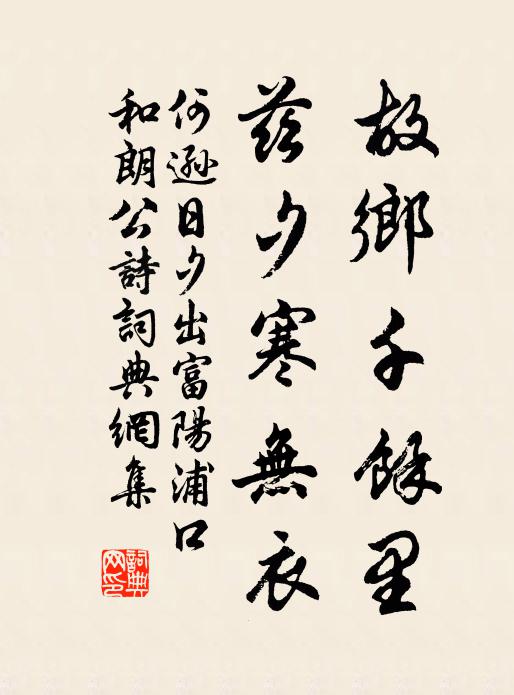 故鄉千餘里
茲夕寒無衣
何遜日夕出富陽浦口
和朗公詩詞典網集
詞典
网印